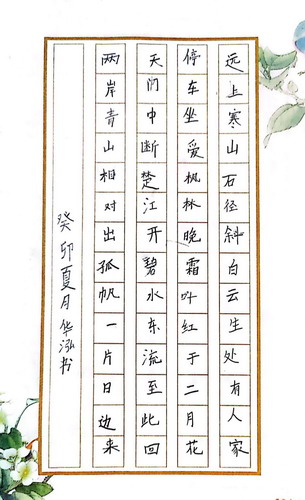 远上寒山石径斜白云生处有人家
停车坐爱枫林晚霜叶红于二月花
天门中断楚江开碧水东流至此回
两岸青山相对出孤帆一片日边来
癸卯夏月华泓书